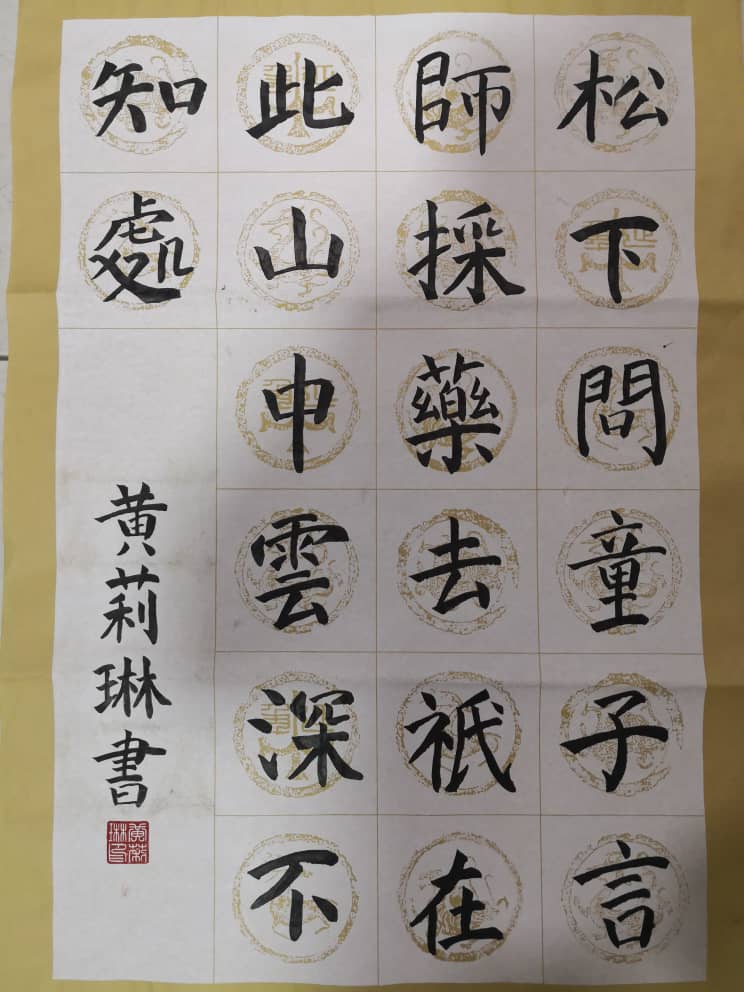 松下問童子言
師採藥去祇在
此山中雲深不
知處
黄莉琳書
黄莉琳印